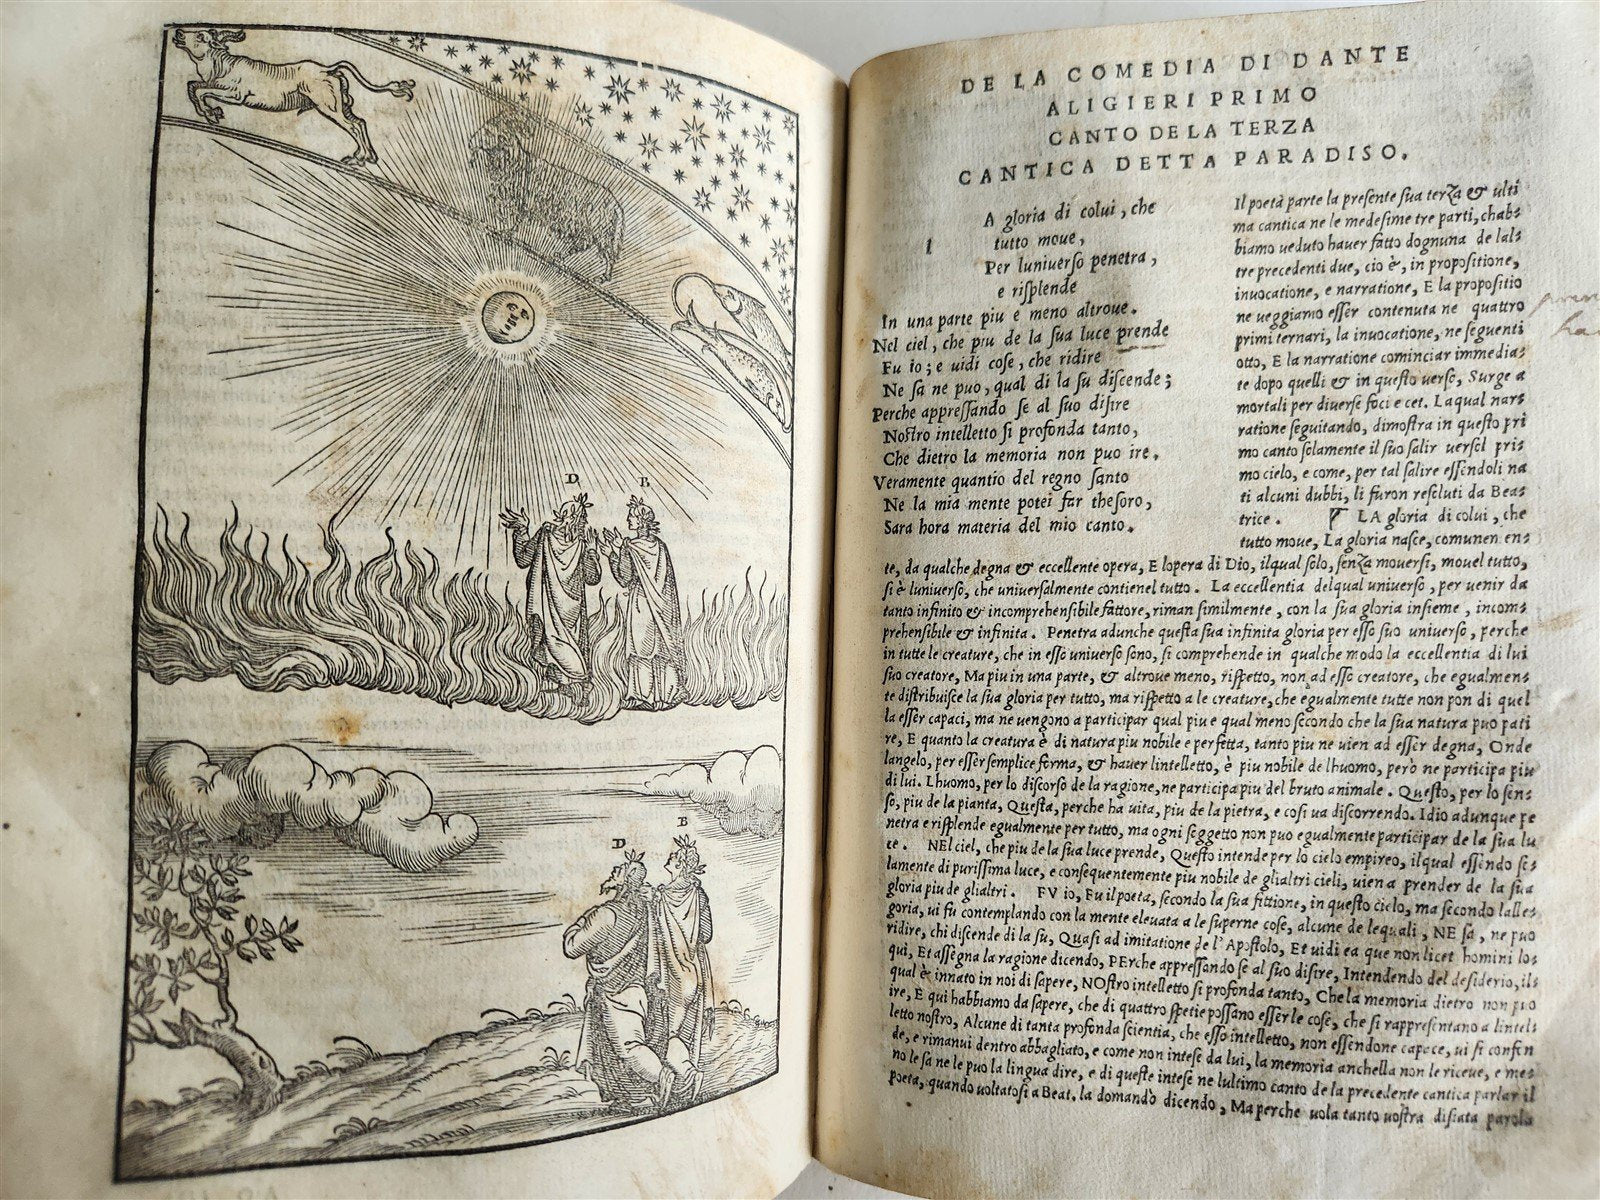 D B
D B
DE LA COMEDIA DI DANTE
ALIGIERI PRIMO
CANTO DE LA TERZA
CANTICA DETTA PARADISO.
l
A gloria di colui, che
tutto moue,
Per luniuerso penetra,
e risplende
In una parte piu e meno altroue.
Nel ciel, che piu de la sua luce prende
Fu io; e uidi cose, che ridire
Ne sa ne puo, qual di la su discende;
Perche appressando se al suo disire
Nostro intelletto si profonda tanto,
Che dietro la memoria non puo ire.
Veramente quantio del regno santo
Ne la mia mente potei far thesoro,
Sara hora materia del mio canto.
Il poetà parte la presente sua terza & ulti
ma cantica ne le medesime tre parti, chab-
biamo ueduto hauer fatto dognuna de lal-
tre precedenti due, cio è, in propositione,
inuocatione, e narratione, E la propositio
ne ueggiamo esser contenuta ne quattro
primi ternari, la inuocatione, ne seguenti
otto, E la narratione cominciar immedia-
te dopo quelli & in questo uerso, Surge a
mortali per diuerse foci e cet. La qual nar-
ratione seguitando, dimostra in questo pri
mo canto solamente il suo salir uersol pri-
mo cielo, e come, per tal salire essendoli na
ti alcuni dubbi, li furon resoluti da Bea-
trice. LA gloria di colui, che
tutto moue, La gloria nasce, comunen en-
te, da qualche degna & eccellente opera, E lopera di Dio, ilqual solo, senza mouersi, mouel tutto,
si è luniuerso, che uniuersalmente contienel tutto. La eccellentia delqual uniuerso, per uenir da
tanto infinito & incomprehensibile fattore, riman similmente, con la sua gloria insieme, incom-
prehensibile & infinita. Penetra adunche questa sua infinita gloria per esso suo uniuerso, perche
in tutte le creature, che in esso uniuerso sono, si comprende in qualche modo la eccellentia di lui
suo creatore, Ma piu in una parte, & altroue meno, rispetto, non ad esso creatore, che egualmen-
te distribuisce la sua gloria per tutto, ma rispetto a le creature, che egualmente tutte non pon di quel
la esser capaci, ma ne uengono a participar qual piu e qual meno secondo che la sua natura puo pati
re, E quanto la creatura è di natura piu nobile e perfetta, tanto piu ne uien ad esser degna, Onde
langelo, per esser semplice forma, & hauer lintelletto, è piu nobile de lhuomo, però ne participa piu
di lui. Lhuomo, per lo discorso de la ragione, ne participa piu del bruto animale. Questo, per lo sen-
so, piu de la pianta, Questa, perche ha uita, piu de la pietra, e cosi ua discorrendo. Idio adunque pe
netra e risplende egualmente per tutto, ma ogni seggetto non puo egualmente participar de la sua lu
te. NEl ciel, che piu de la sua luce prende, Questo intende per lo cielo empireo, ilqual essendo so-
lamente di purissima luce, e consequentemente piu nobile de glialtri cieli, uien a prender de la sua
gloria piu de glialtri. FV io, Fu il poeta, secondo la sua fittione, in questo cielo, ma secondo lalle-
goria, ui fu contemplando con la mente eleuata a le superne cose, alcune de lequali, NE sa, ne puo
ridire, chi discende di la su, Quasi ad imitatione de l'Apostolo, Et uidi ea que non licet homini lo-
qui, Et assegna la ragione dicendo, PErche appressando se al suo disire, Intendendo del desiderio, il-
qual è innato in noi di sapere, NOstro intelletto si profonda tanto, Che la memoria dietro non puo
ire, E qui habbiamo da sapere, che di quattro spetie possano esser le cose, che si rappresentano a lintel-
letto nostro, Alcune di tanta profonda scientia, che esso intelletto, non essendone capace, ui si confon
de, e rimanui dentro abbagliato, e come non intese da lui, la memoria anchella non le riceue, e me-
no le sa ne le puo la lingua dire, e di queste intese ne lultimo canto de la precedente cantica parlar il
poeta, quando uoltatosi a Beat. la domandò dicendo, Ma perche uola tanto uostra disiata parola